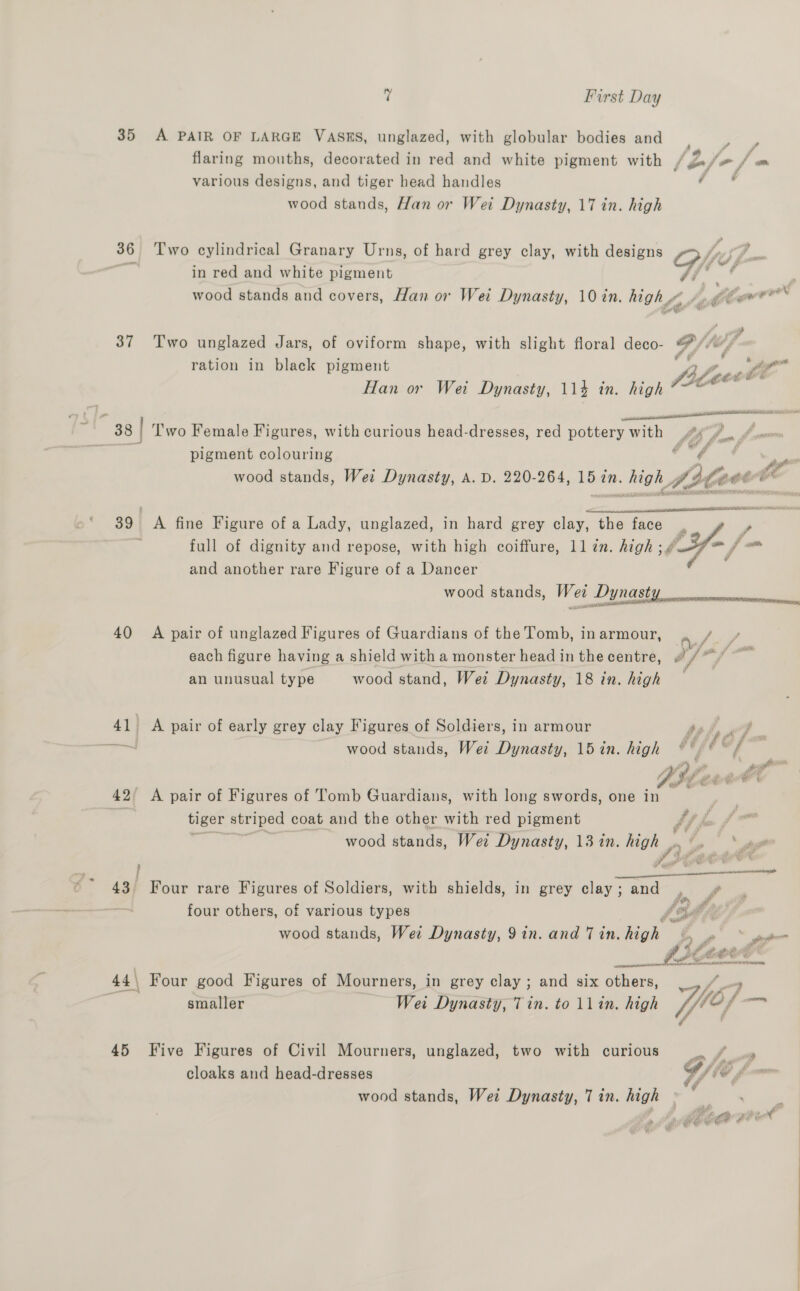 7 First Day
35 A PAIR OF LARGE VASES, unglazed, with globular bodies and
flaring mouths, decorated in red and white pigment with
various designs, and tiger head handles
wood stands, Han or Wei Dynasty, 17 in. high
36 Two cylindrical Granary Urns, of hard grey clay, with designs
in red and white pigment
wood stands and covers, Han or Wei Dynasty, 10 in. high
37 Two unglazed Jars, of oviform shape, with slight floral deco-
ration in black pigment
Han or Wei Dynasty, 11½ in. high
38 Two Female Figures, with curious head-dresses, red pottery with
pigment colouring
wood stands, Wei Dynasty, A. D. 220-264, 15 in. high
39 A fine Figure of a Lady, unglazed, in hard grey clay, the face
full of dignity and repose, with high coiffure, 11 in. high;
and another rare Figure of a Dancer
wood stands, Wei Dynasty
40 A pair of unglazed Figures of Guardians of the Tomb, in armour,
each figure having a shield with a monster head in the centre,
an unusual type wood stand, Wei Dynasty, 18 in. high
41 A pair of early grey clay Figures of Soldiers, in armour
wood stands, Wei Dynasty, 15 in. high
42 A pair of Figures of Tomb Guardians, with long swords, one in
tiger striped coat and the other with red pigment
wood stands, Wei Dynasty, 13 in. high
43 Four rare Figures of Soldiers, with shields, in grey clay; and
four others, of various types
wood stands, Wei Dynasty, 9 in. and 7 in. high
44 Four good Figures of Mourners, in grey clay; and six others,
smaller Wei Dynasty, 7 in. to 11 in. high
45 Five Figures of Civil Mourners, unglazed, two with curious
cloaks and head-dresses
wood stands, Wei Dynasty, 7 in. high